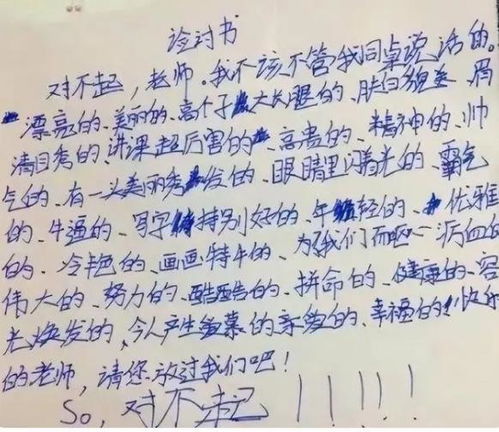 检讨书
对不起，老师。我不该不管我同桌说话的。
漂亮的、美丽的、高个子大长腿的、肤白貌美、眉
清目秀的、讲课超厉害的、高贵的、精神的、帅
气的、有一头美丽秀发的、眼睛里闪着光的、霸气
的、牛逼的、写字特别好的、年轻的、优雅
的、冷艳的、画画特牛的、为了我们而呕心沥血的
伟大的、努力的、酷酷的、拼命的、健康的、容
光焕发的、令人产生羡慕的亲爱的、幸福的、快的
的老师，请您放过我们吧！
So, 对不起！！！！！